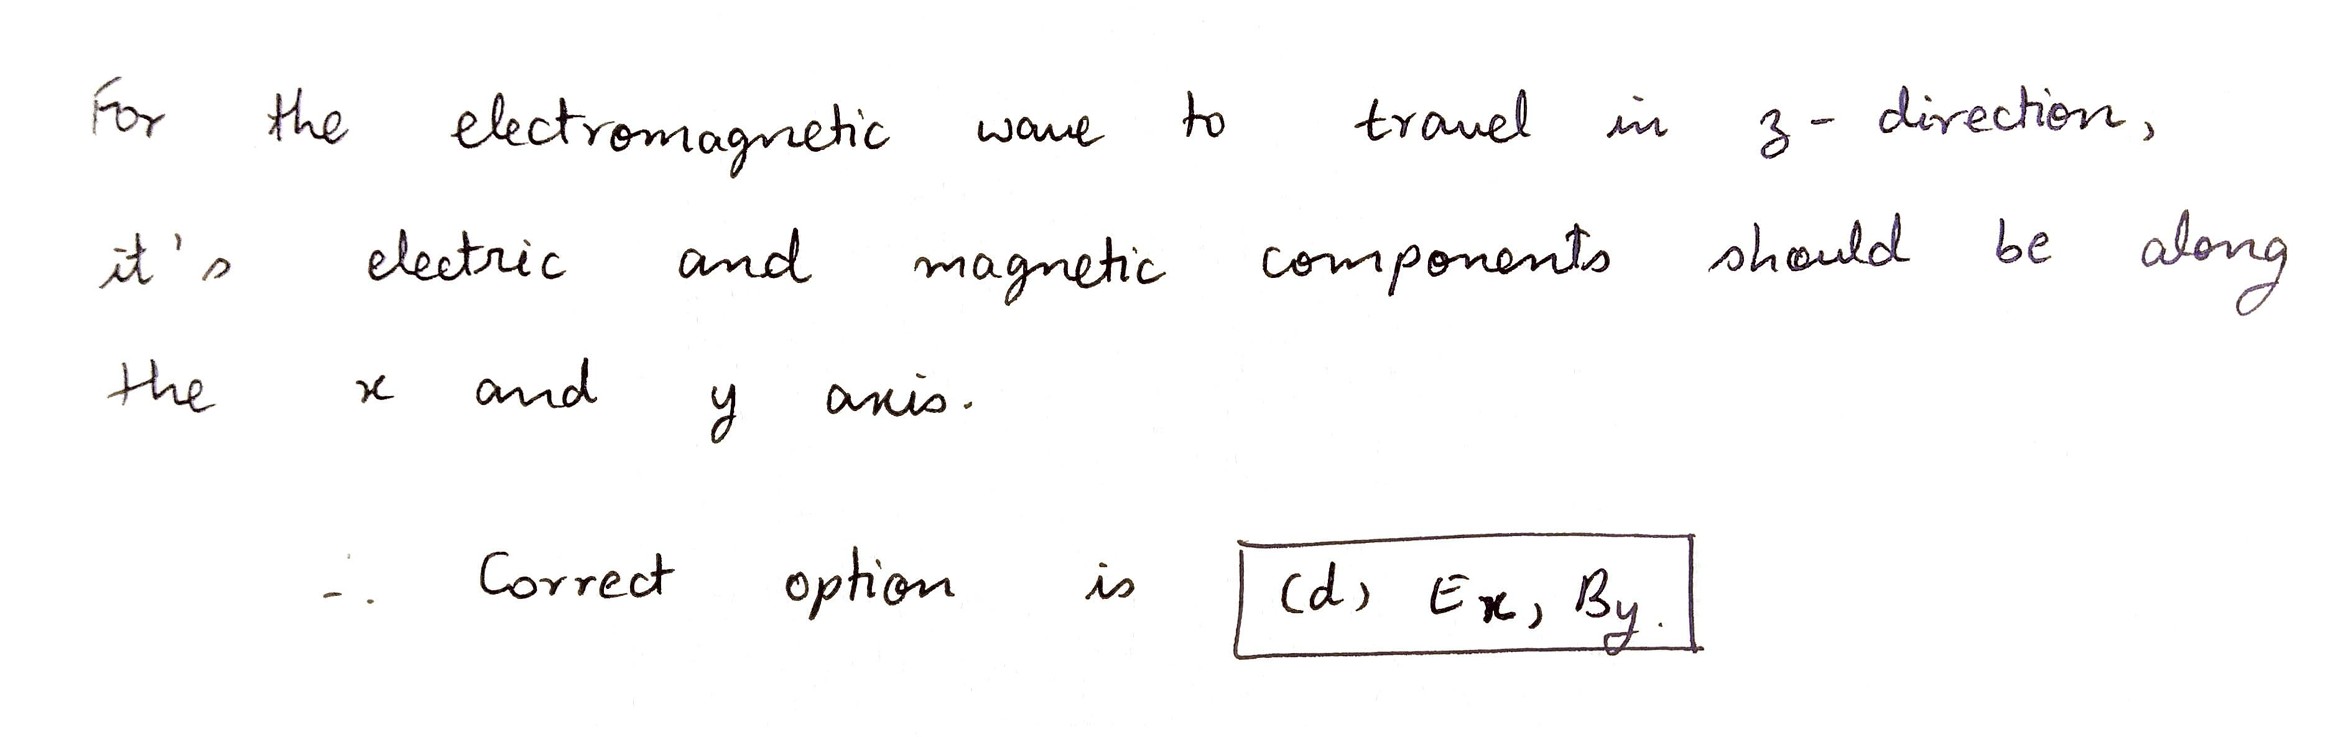 For the electromagnetic wave to travel in z-direction,
it's electric and magnetic components should be along
the x and y axis.
∴ Correct option is (d) Ex, By.